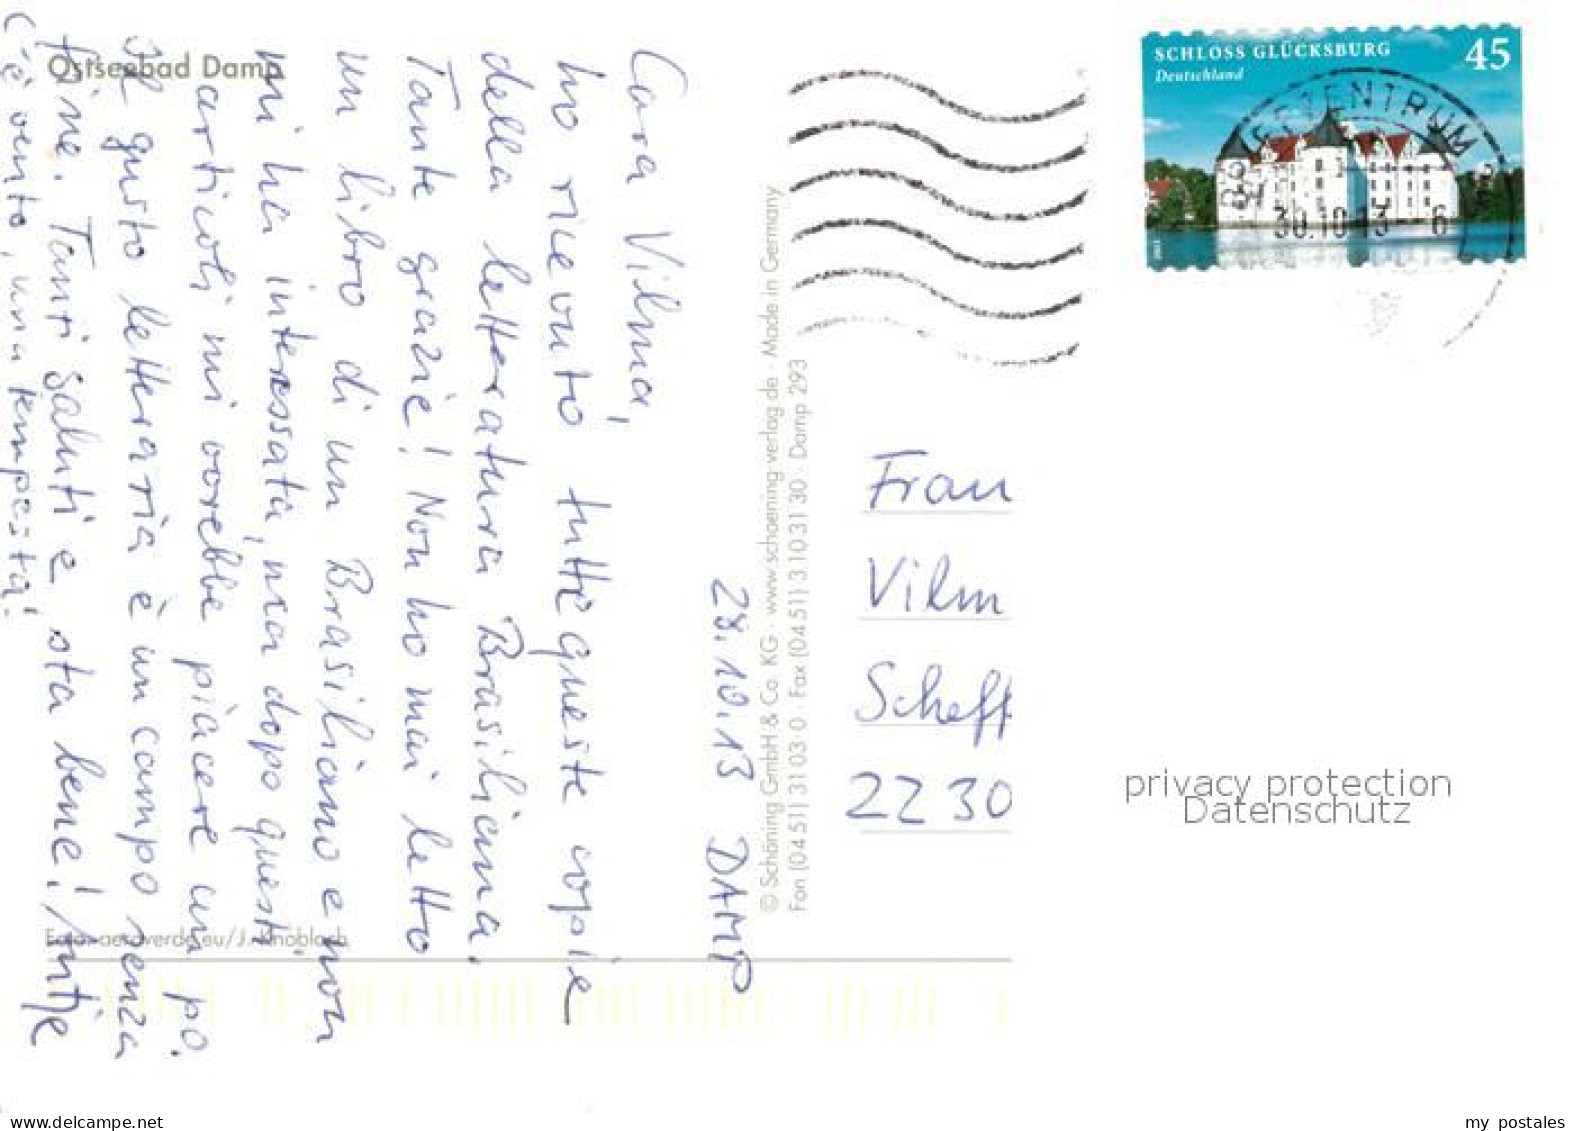 Ostseebad Damp
28.10.13 DAMP
Cara Vilma,
ho ricevuto tutte queste copie
della letteratura Brasiliana.
Tante grazie! Non ho mai letto
un libro di un Brasiliano e non
mi ha interessata, ma dopo questi
articoli mi vorebbe piacere un po.
Il gusto letteraria è un campo senza
fine. Tanti saluti e sta bene! Antje
C'è vento, una tempesta!
Foto: aeroverde.eu/J. Knobloch
© Schöning GmbH & Co. KG · www.schoening-verlag.de · Made in Germany
Fon (04 51) 3 10 3 0 · Fax (04 51) 3 10 31 30 · Damp 293
SCHLOSS GLÜCKSBURG 45
Deutschland
BRIEFZENTRUM
30.10.13 6
Frau
Vilm
Scheff
22 30
privacy protection
Datenschutz
www.delcampe.net
my_postales